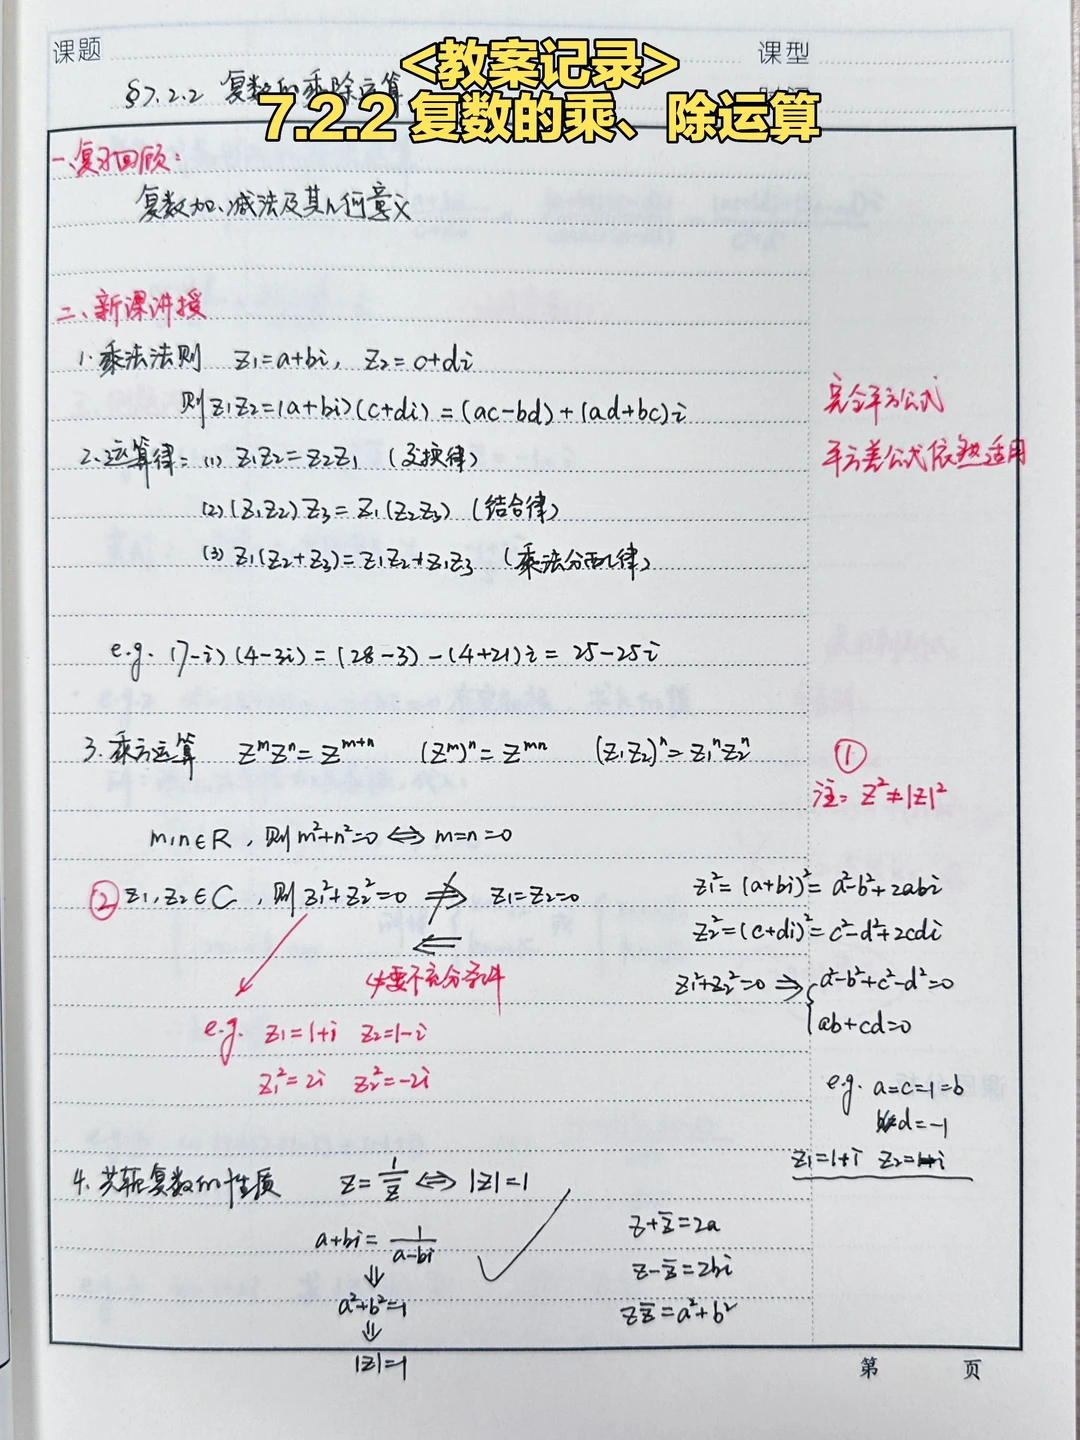 课题
课型
<教案记录>
§7.2.2 复数的乘除运算
7.2.2 复数的乘、除运算
一、复习回顾:
复数加、减法及其几何意义
二、新课讲授
1. 乘法法则 z₁=a+bi, z₂=c+di
则z₁z₂=(a+bi)(c+di)=(ac-bd)+(ad+bc)i
完全平方公式
平方差公式依然适用
2.运算律: (1) z₁z₂=z₂z₁ (交换律)
(2) (z₁z₂)z₃=z₁(z₂z₃) (结合律)
(3) z₁(z₂+z₃)=z₁z₂+z₁z₃ (乘法分配律)
e.g. (7-i)(4-3i)=(28-3)-(4+21)i=25-25i
3.乘方运算 zᵐzⁿ=zᵐ⁺ⁿ (zᵐ)ⁿ=zᵐⁿ (z₁z₂)ⁿ=z₁ⁿz₂ⁿ
①
注: z²≠|z|²
m,n∈R, 则m²+n²=0⇔m=n=0
② z₁,z₂∈C, 则z₁²+z₂²=0 ⇏ z₁=z₂=0
⇐
必要不充分条件
e.g. z₁=1+i z₂=1-i
z₁²=2i z₂²=-2i
z₁²=(a+bi)²=a²-b²+2abi
z₂²=(c+di)²=c²-d²+2cdi
z₁²+z₂²=0 ⇒ {a²-b²+c²-d²=0
ab+cd=0
e.g. a=c=1=b
d=-1
z₁=1+i z₂=1-i
4.共轭复数的性质 z=1/z̄ ⇔ |z|=1
a+bi=1/(a-bi)
⇓
a²+b²=1
⇓
|z|=1
z+z̄=2a
z-z̄=2bi
zz̄=a²+b²
第 页